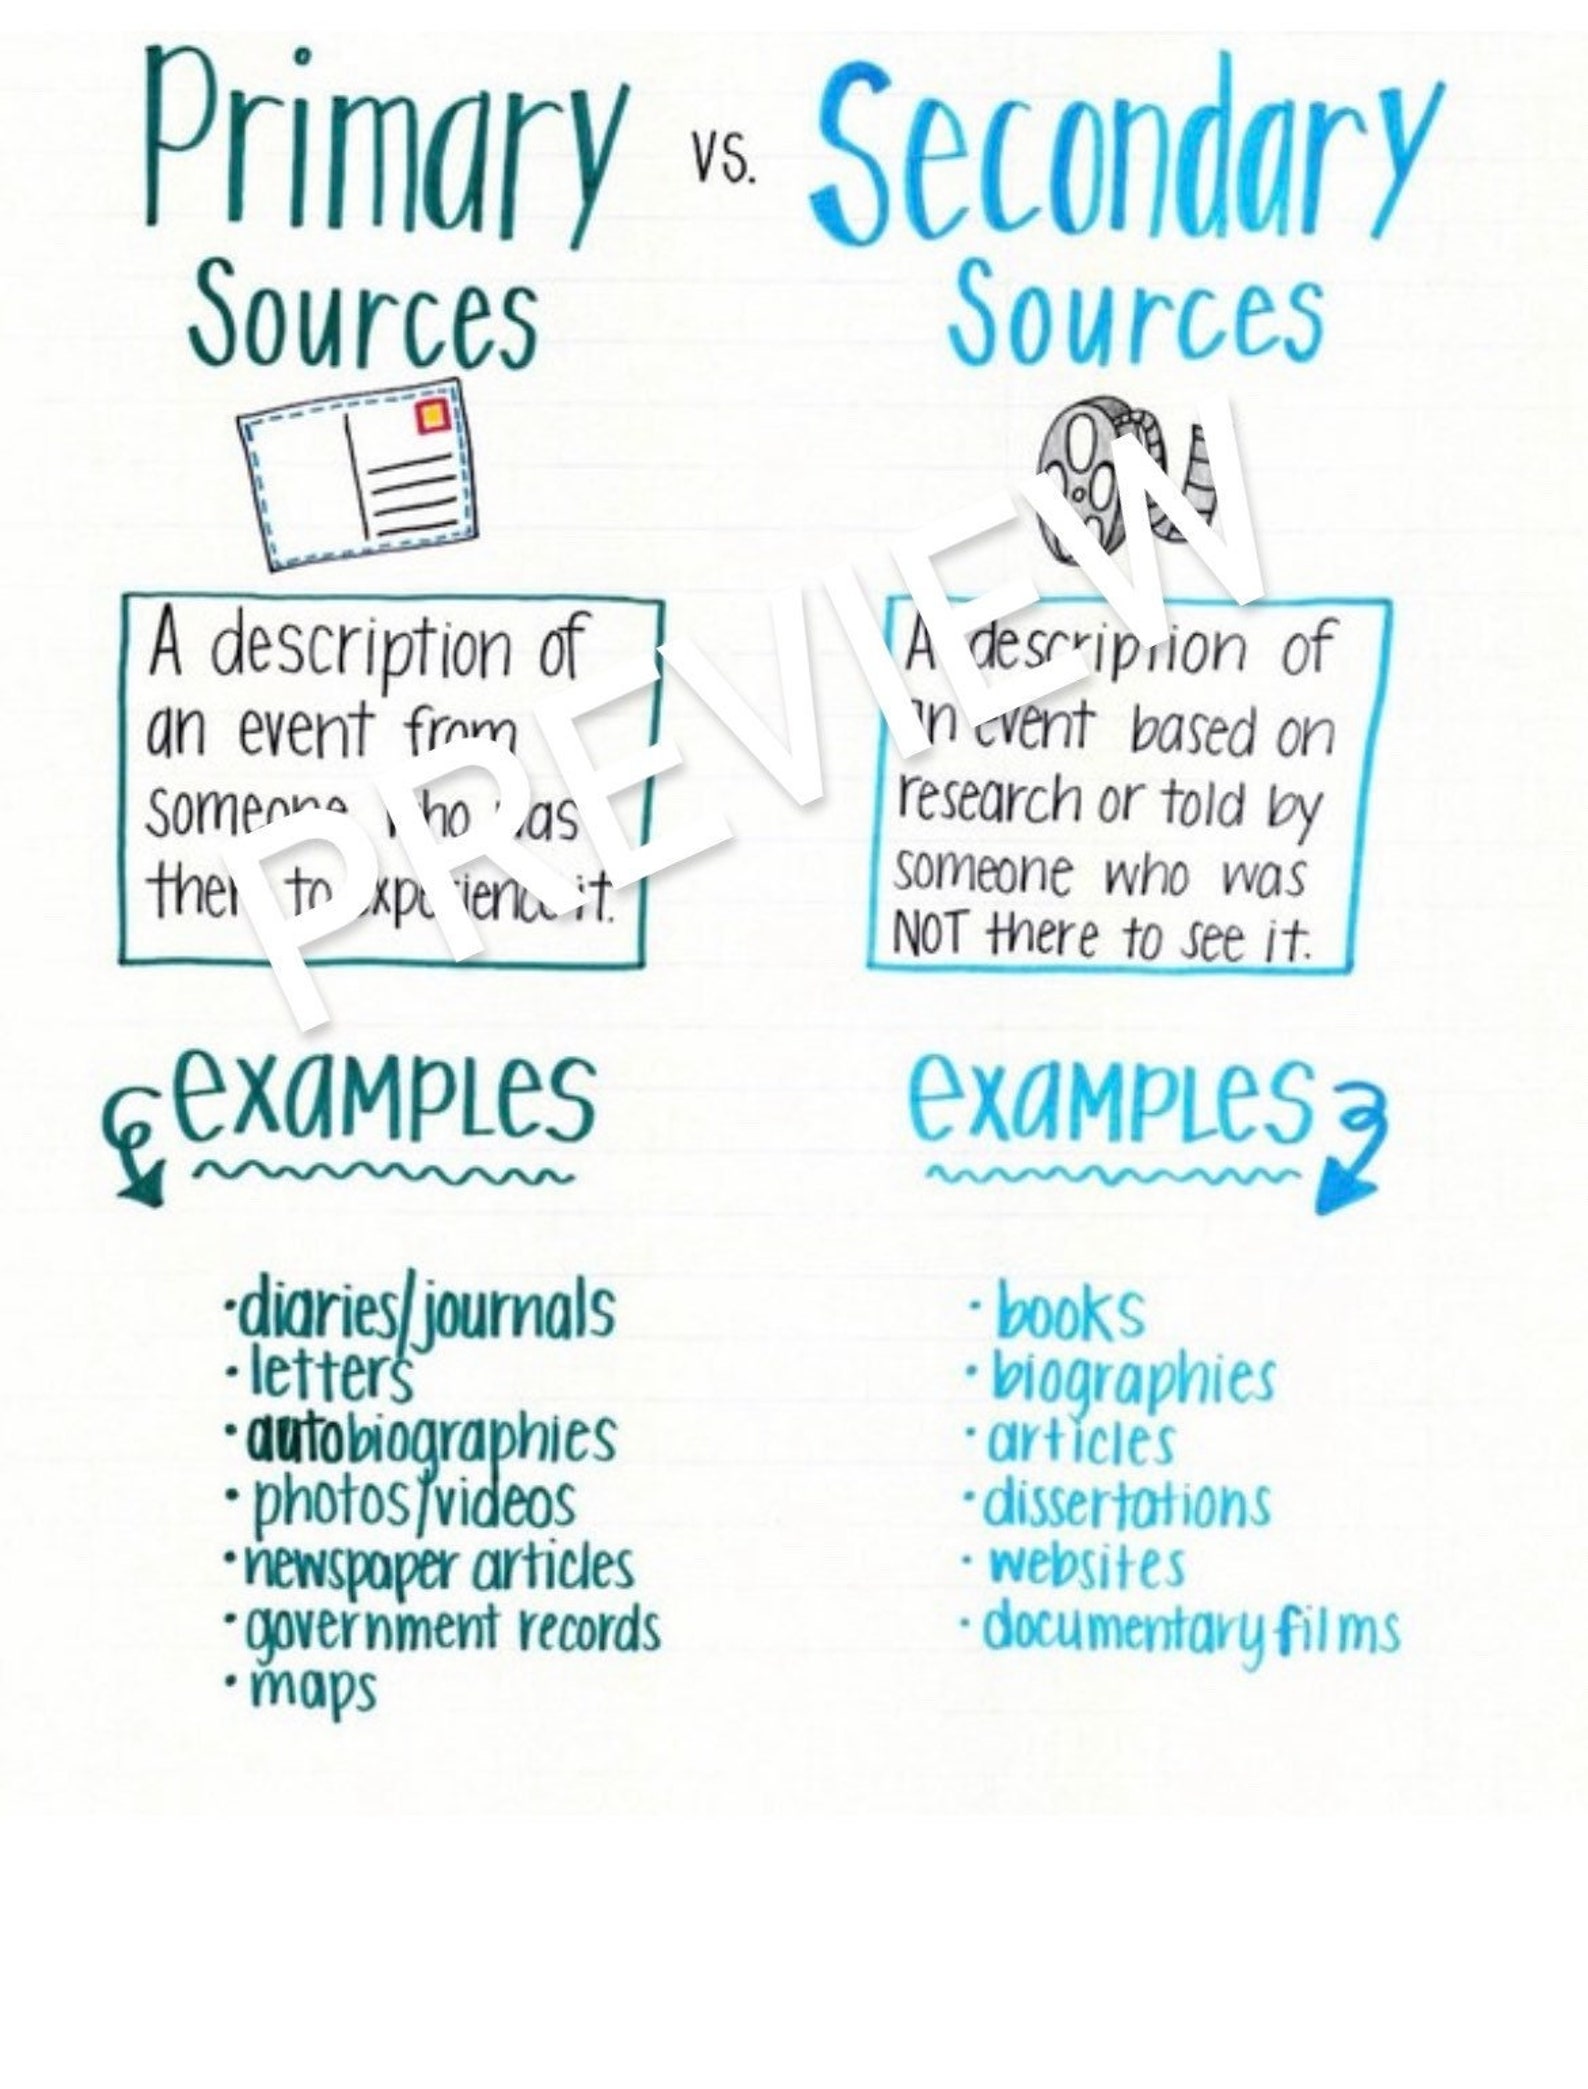 Primary vs. Secondary
Sources
Sources
A description of
an event from
someone who was
there to experience it.
A description of
an event based on
research or told by
someone who was
NOT there to see it.
PREVIEW
examples
diaries/journals
letters
autobiographies
photos/videos
newspaper articles
government records
maps
examples
books
biographies
articles
dissertations
websites
documentary films